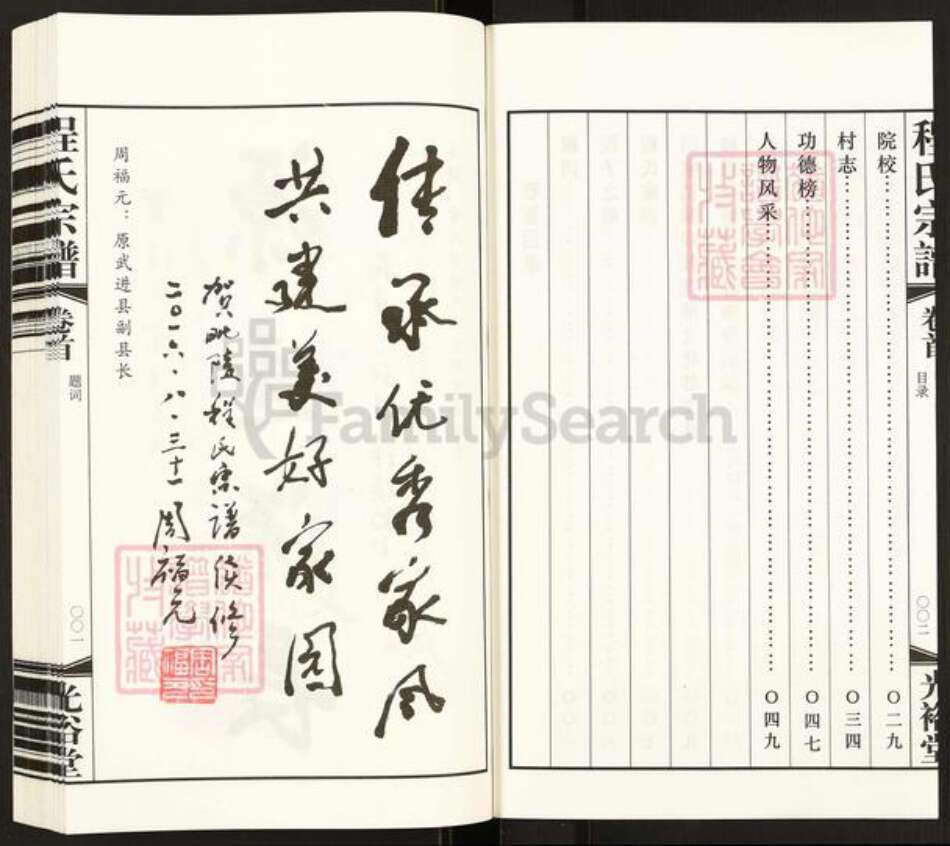 程氏宗譜
卷首
目录
〇〇二
光裕堂
院校……〇二九
村志……〇三四
功德榜……〇四七
人物风采……〇四九
传承优秀家风
共建美好家园
贺毗陵程氏宗谱续修
二〇一六·八·三十一 周福元
周福元：原武进县副县长
程氏宗譜
卷首
题词
〇〇一
光裕堂
FamilySearch